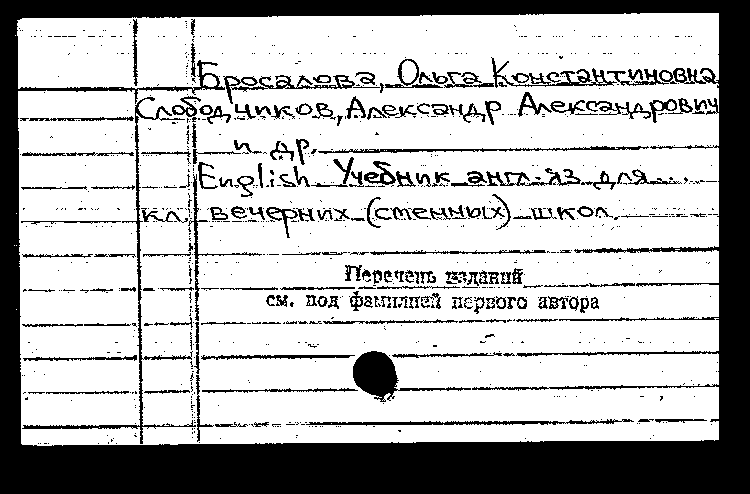 Бросалова, Ольга Константиновна
Слободчиков, Александр Александрович
и др.
English. Учебник англ. яз для...
кл. вечерних (сменных) школ.
Перечень изданий
см. под фамилией первого автора